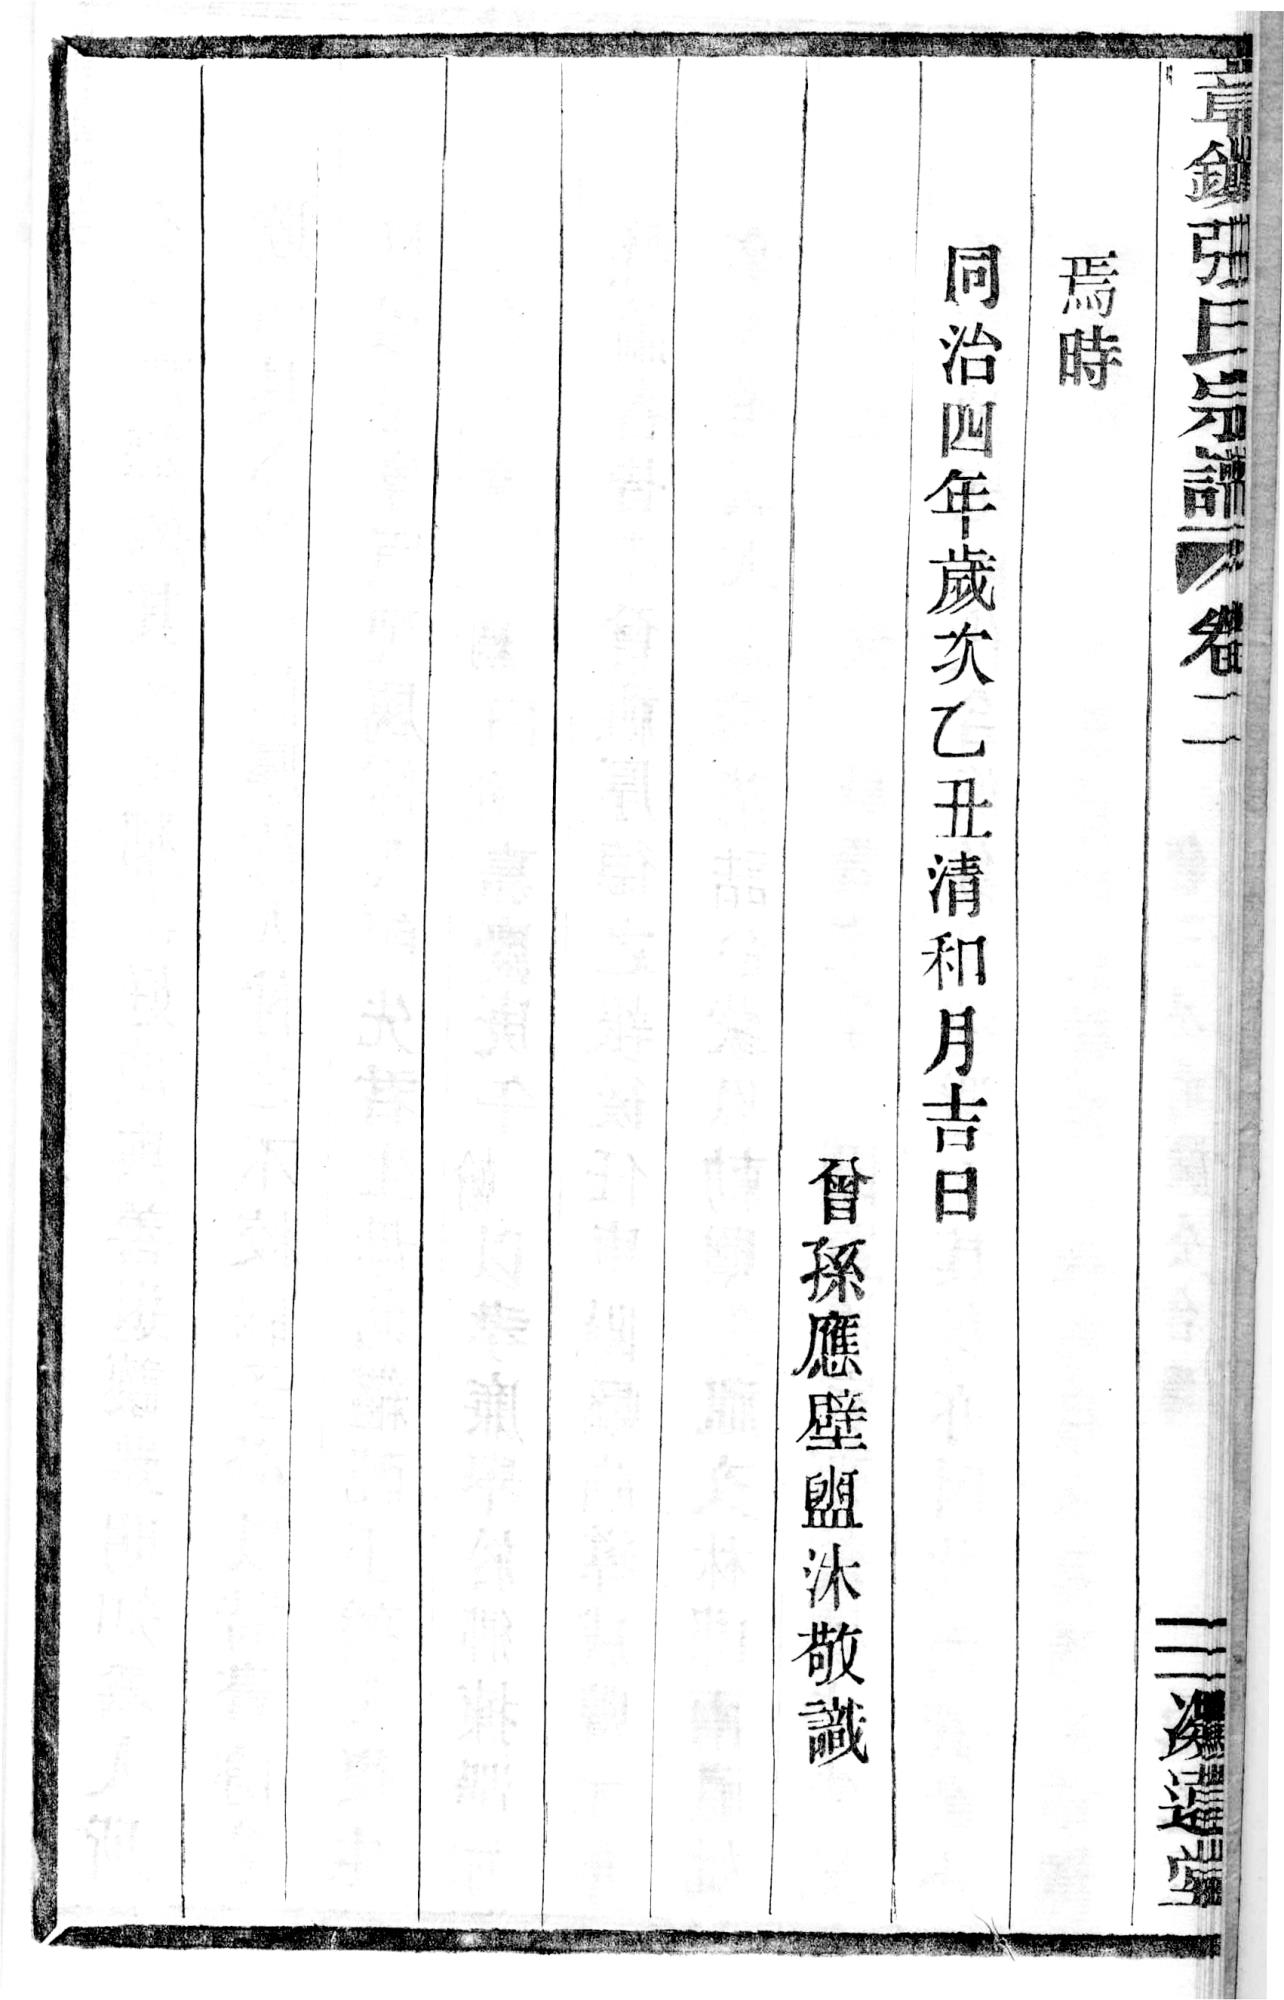 章鎮張氏宗譜 卷二 三
焉時
同治四年歲次乙丑清和月吉日
曾孫應壁盥沐敬識